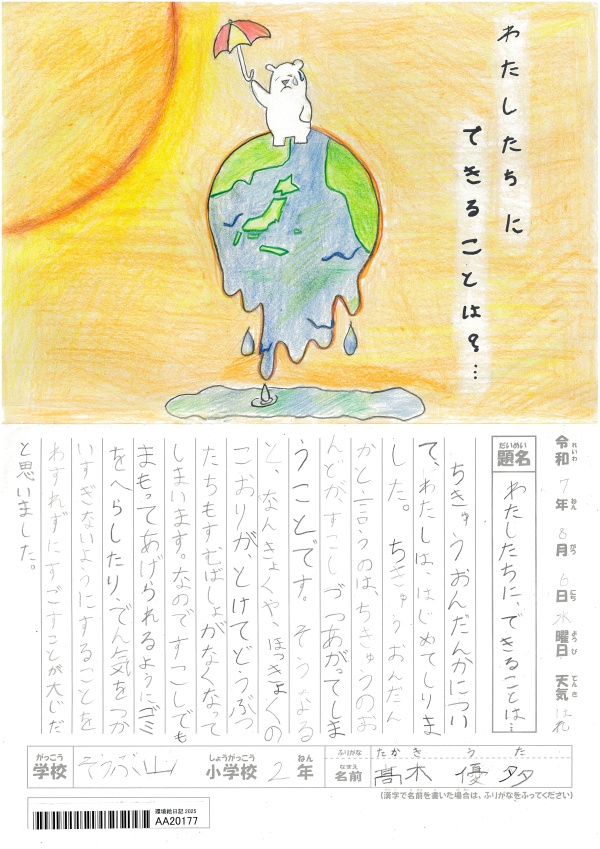 わたしたちに
できることは?…
令和7年8月6日水曜日 天気はれ
れいわ ねん がつ にち ようび てんき
だいめい
題名
わたしたちに、できることは…
ちきゅうおんだんかについ
て、わたしは、はじめてしりま
した。ちきゅうおんだん
かと言うのは、ちきゅうのお
んどが、すこしづつあがってしま
うことです。そうなる
と、なんきょくや、ほっきょくの
こおりが、とけてどうぶつ
たちもすむばしょがなくなって
しまいます。なのですこしでも
まもってあげられるようにゴミ
をへらしたり、でん気をつか
いすぎないようにすることを
わすれずにすごすことが大じだ
と思いました。
がっこう しょうがっこう ねん
学校 そうぶ山 小学校 2年
ふりがな たかき うた
なまえ
名前 髙木 優多
(漢字で名前を書いた場合は、ふりがなをふってください)
環境絵日記 2025
AA20177